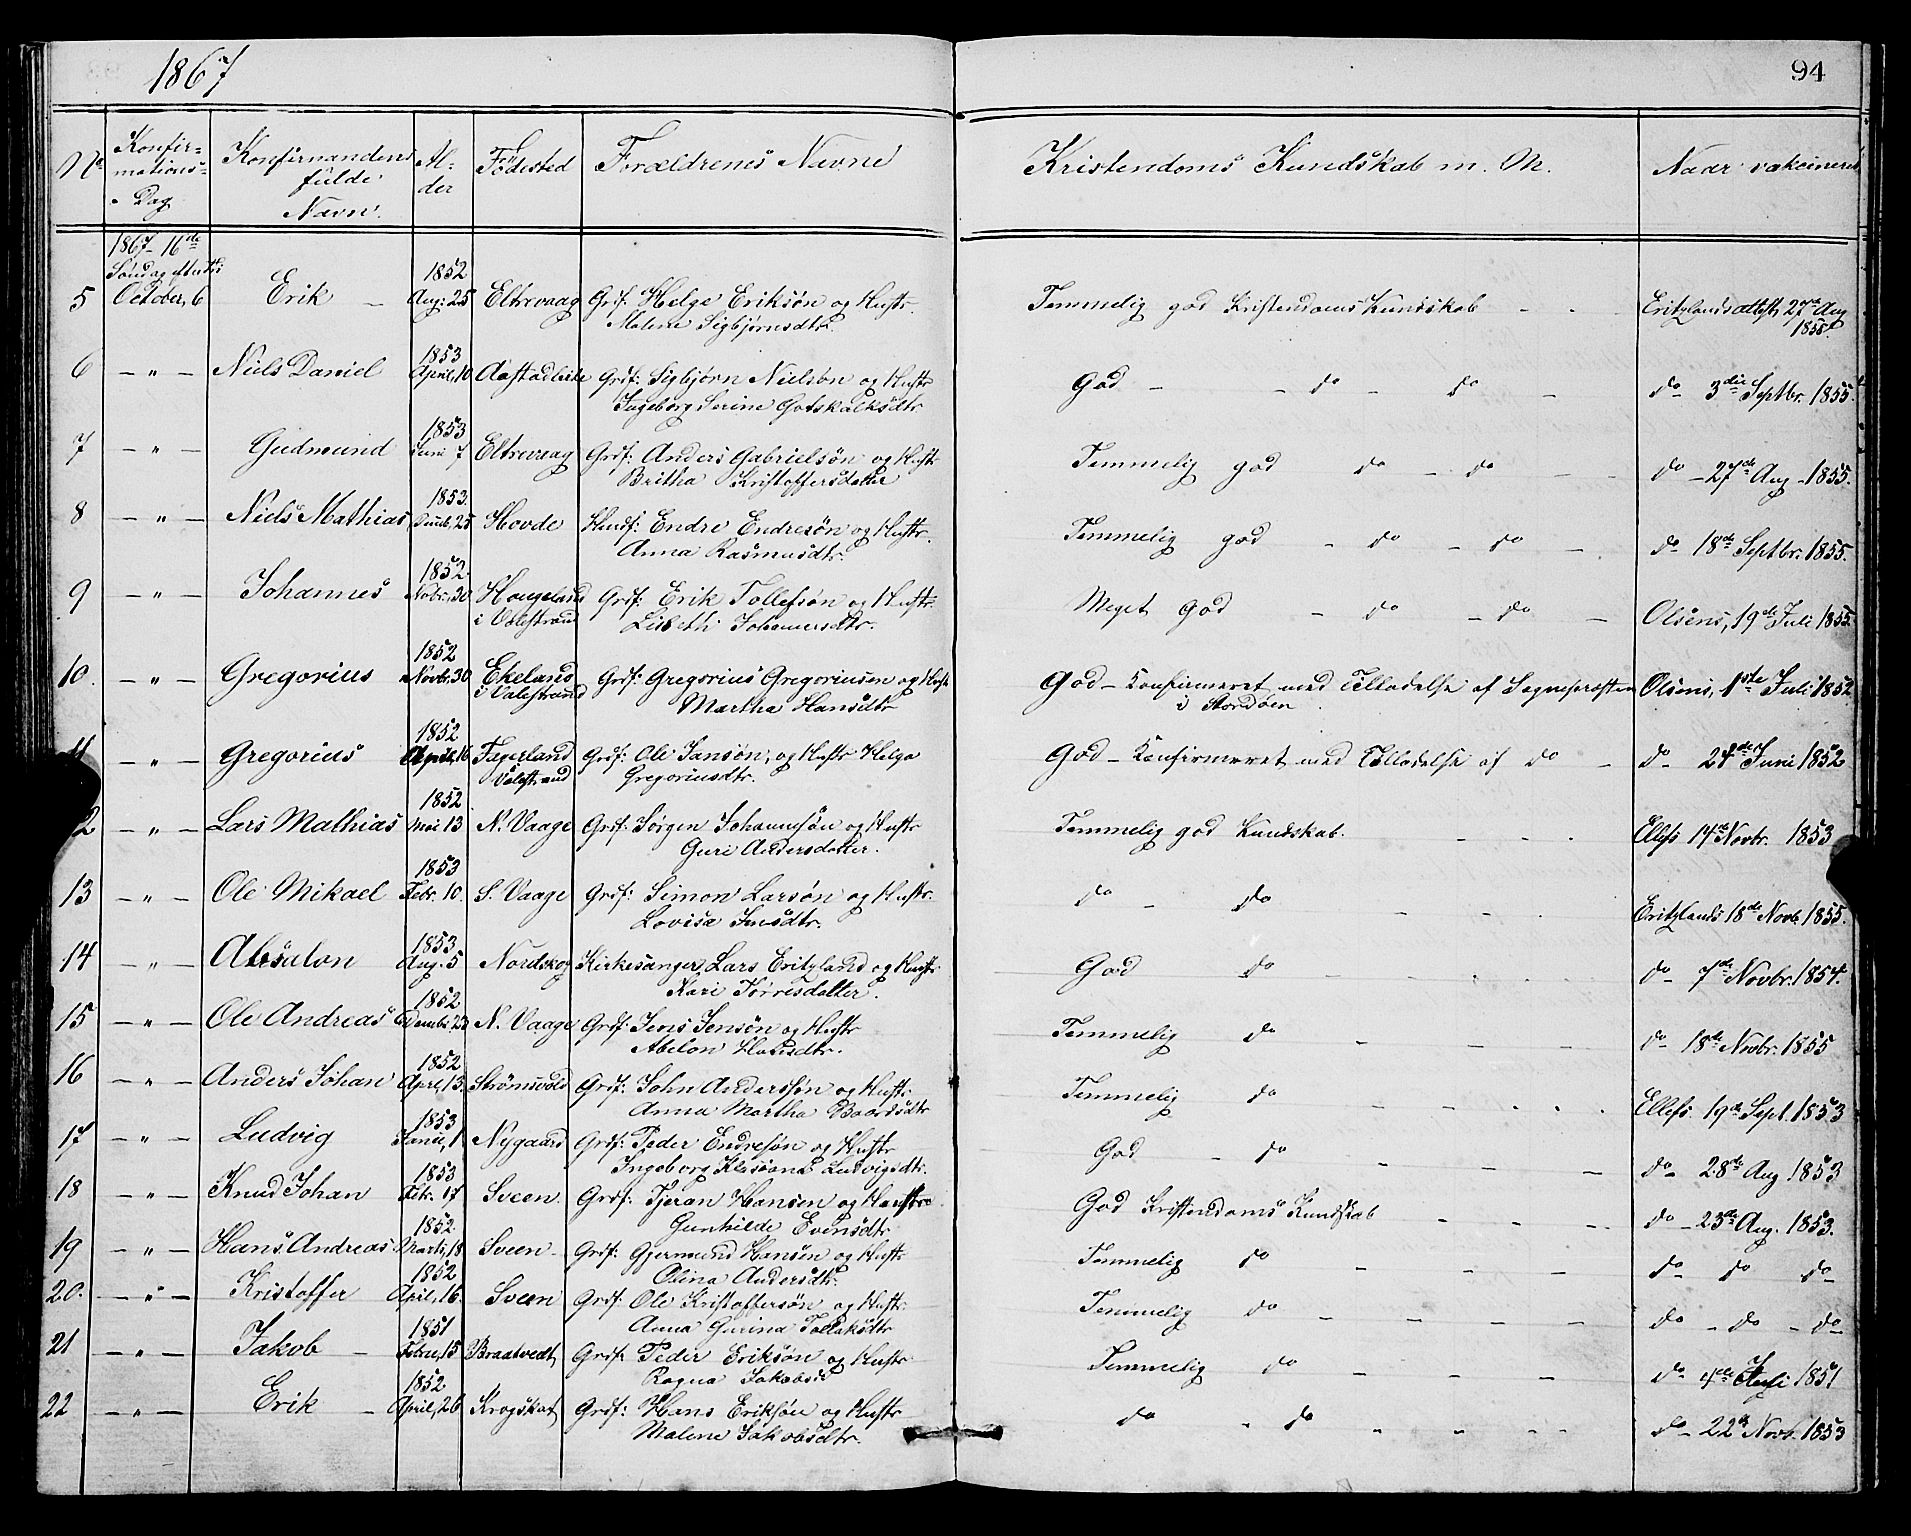 1867
94
No Konfirmations-Dag Konfirmandens fulde Navn. Alder Födested Forældrenes Navne Kristendoms Kundskab m. M. Naar vakcineret
1867 16de Söndag efter Tri
5 October, 6 Erik – 1852 Aug: 25 Eltrevaag Grdf: Helge Eriksøn og Hustr. Temmelig god Kristendoms Kundskab - - Eritzlands attest, 27de Aug
Malene Sigbjørnsdtr. 1855
6 – " – Niels Daniel 1853 April, 10 Grdf: Sigbjørn Nielsøn og Hustr God – – do – do – do 3die Septbr. 1855.
Ingeborg Serine Gotskalksdtr
7 – " – Gudmund 1853 Juni 7 Eltrevaag Grdf: Anders Gabrielsøn og Hustr Temmelig god do – do – – do – 27de Aug – 1855.
Britha Kristoffersdatter
8 – " – Niels Mathias 1853. 25 Hovde Husf: Endre Endresøn og Hustr. Temmelig god – do – do – do 18de Septbr. 1855.
Anna Rasmusdtr.
9 – " – Johannes 1852. Nobr. 30 Hougeland Grdf: Erik Tollefsøn og Hustr. Meget God – do – do – Olsens, 19de Juli 1855.
i Valestrand Lisbeth Johannesdtr.
10. – " – Gregorius 1852 Novbr. 30 Ekeland Grdf: Gregorius Gregoriusen og Hustr God – Konfirmeret med Tilladelse af Sognepræsten Olsens, 1ste Juli 1852
i Valestrand Martha Hansdtr i Stordøen.
11 – " – Gregorius 1852 April, 16 Fagerland Grdf: Ole Jansøn, og Hustr Helga God – Konfirmeret med Tilladelse af do – do 24de Juni 1852
Valestrand Gregoriusdtr.
2 – " – Lars Mathias 1852 Mai 13 N. Vaage Grdf: Jörgen Johannesøn og Hustr Temmelig god Kundskab. – – – Ellefs 14de Novbr. 1853
Guri Andersdatter.
13 – " – Ole Mikael 1853 Febr. 10. S. Vaage Grdf: Simon Larsøn og Hustr. do – do – – Eritzlands 18de Novb. 1855.
Lovise Jensdtr.
14 – " – Absalon 1853 Aug. 5 Nordskog Kirkesanger Lars Eritzland og Hustr God do – – – do 7de Novbr. 1854.
Kari Tørresdatter.
15 – " – Ole Andreas 1852 Decemb. 23 N. Vaage Grdf: Jens Jensøn og Hustr Temmelig do – – – do 18de Novbr. 1855
Abelon Hansdtr.
16 – " – Anders Johan 1852 April, 13 Strömsvold Grdf: John Anderssøn og Hustr. Temmelig do – – – Ellefs. 19de Sept. 1853
Anna Martha Baardsdtr
17 – " – Ludvig 1853 Nygaard Grdf: Peder Endresøn og Hustr God – do – – – do 28de Aug 1853
Ingeborg Ludvigsdtr.
18 – " – Knud Johan 1853 Febr. 17 Sveen Grdf: Tjeran Hansen og Hustr God Kristendoms Kundskab – – do – 23de Aug. 1853.
Gunhilde Evensdtr
19 – " – Hans Andreas 1852 Marts, 18 Sveen – Grdf: Gjermund Hansen og Hustr Temmelig do – – – do do do
Olina Andersdtr.
20. – " – Kristoffer 1852 April, 16. Sveen Grdf: Ole Kristoffersøn og Hustr. Temmelig do – – – – do – do – do
Anna Gurina Tollaksdtr
21 – " – Jakob – 1851 Febru, 15 Braatvedt Grdf: Peder Eriksøn og Hustr Temmelig do – – – do 4de Juli 1851
Ragna Jakobsd
22 – " – Erik – 1852 April, 26 Krogskat Grdf: Hans Eriksøn og Hustr do – do – – – do 22de Novb. 1853
Malene Jakobsdtr.